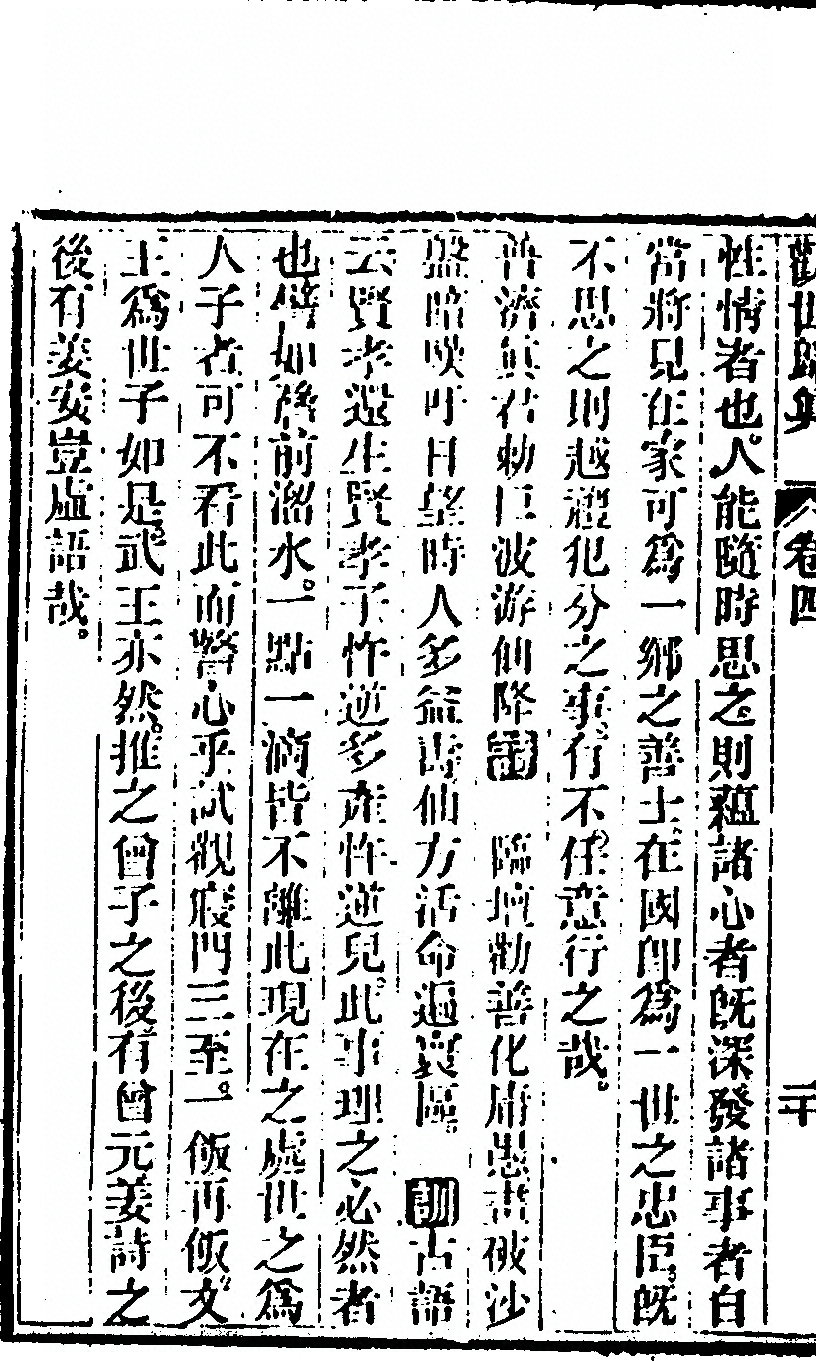 勸世歸真 卷四 二十
性情者也。人能隨時思之。則蘊諸心者既深發諸事者自
當將見在家可爲一鄉之善士。在國即爲一世之忠臣。既
不思之則越禮犯分之事。行不任意行之哉。
普濟真君勅臣波游仙降詩 臨壇勸善化庸愚書破沙
盤暗嘆吁日望時人多益壽仙方活命遍寰區。 訓古語
云賢孝還生賢孝子忤逆多產忤逆兒。此事理之必然者
也譬如簷前溜水。一點一滴皆不離此現在之處世之爲
人子者可不看此而警心乎試觀寢門三至。一飯再飯。文
王爲世子如是。武王亦然。推之曾子之後有曾元姜詩之
後有姜安豈虛語哉。